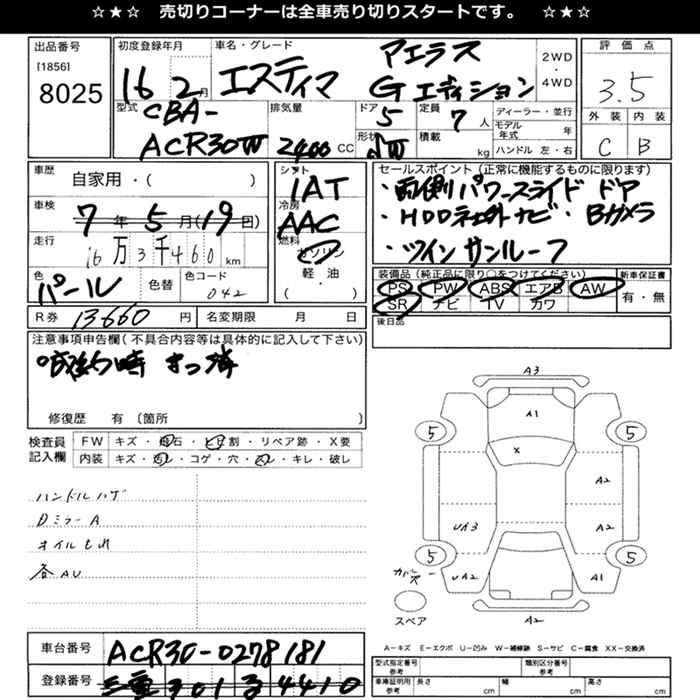 ☆★☆ 売切りコーナーは全車売り切りスタートです。 ☆★☆
出品番号 [1856] 8025
初度登録年月 16 2月
車名・グレード エスティマ アエラス Gエディション
2WD・4WD
評価点 3.5
外装 C 内装 B
型式 CBA-ACR30W
排気量 2400 CC
ドア 5
形状
定員 7 人
積載 kg
ディーラー・並行
モデル年式 年
ハンドル 左・右
車歴 自家用・( )
車検 7年5月(19日)
走行 16万3千460 km
色 パール 色替 色コード 042
シフト IAT
冷房 AAC
燃料 ガソリン
軽・油
( )
セールスポイント(正常に機能するものに限ります)
・両側パワースライドドア
・HDD ナビ・Bカメラ
・ツインサンルーフ
装備品(純正品に限り○をつけてください)
PS PW ABS エアB AW
SR ナビ TV カワ
新車保証書 有・無
後日品
R券 13660 円 名変期限 月 日
注意事項申告欄(不具合内容等は具体的に記入して下さい)
修復歴 有 〔箇所 〕
検査員記入欄
FW キズ・飛石・ヒビ割・リペア跡・X要
内装 キズ・汚レ・コゲ・穴・スレ・キレ・破レ
ハンドルハゲ
DミラーA
オイルもれ
各AU
A3
A1
X
5 5
A2
UA3 A2
5 5
UA2 A1
A2
スペア
A-キズ E-エクボ U-凹み W-補修跡 S-サビ C-腐食 XX-交換済
車台番号 ACR30-0278181
登録番号 三重 301 4410
型式指定番号 参考 類別区分番号 参考
車庫証明用 参考 長さ cm 幅 cm 高さ cm